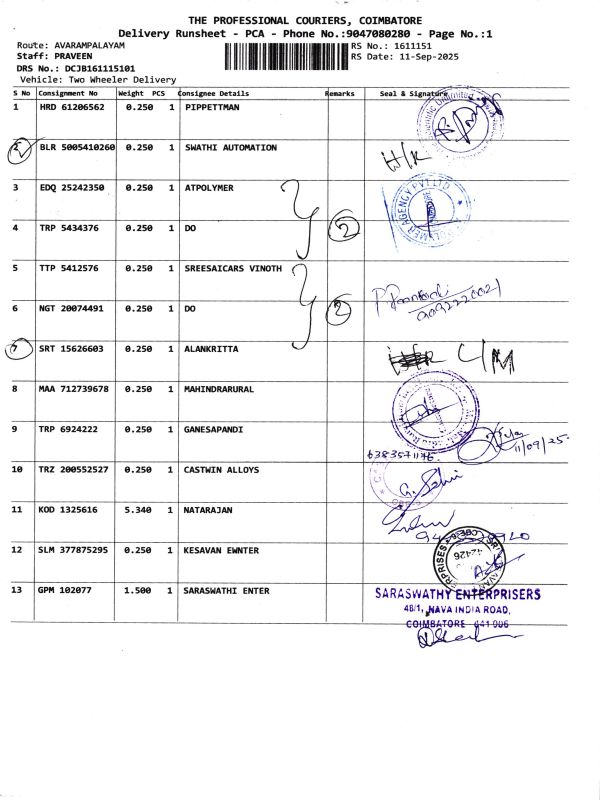 THE PROFESSIONAL COURIERS, COIMBATORE
Delivery Runsheet - PCA - Phone No.:9047080280 - Page No.:1
Route: AVARAMPALAYAM RS No.: 1611151
Staff: PRAVEEN RS Date: 11-Sep-2025
DRS No.: DCJB161115101
Vehicle: Two Wheeler Delivery
S No Consignment No Weight PCS Consignee Details Remarks Seal & Signature
1 HRD 61206562 0.250 1 PIPPETTMAN
2 BLR 5005410260 0.250 1 SWATHI AUTOMATION H/R
3 EDQ 25242350 0.250 1 ATPOLYMER
4 TRP 5434376 0.250 1 DO 2
5 TTP 5412576 0.250 1 SREESAICARS VINOTH
6 NGT 20074491 0.250 1 DO 2
7 SRT 15626603 0.250 1 ALANKRITTA
8 MAA 712739678 0.250 1 MAHINDRARURAL
9 TRP 6924222 0.250 1 GANESAPANDI 11/09/25
6383571176
10 TRZ 200552527 0.250 1 CASTWIN ALLOYS
11 KOD 1325616 5.340 1 NATARAJAN
12 SLM 377875295 0.250 1 KESAVAN EWNTER
13 GPM 102077 1.500 1 SARASWATHI ENTER
SARASWATHY ENTERPRISERS
48/1, NAVA INDIA ROAD,
COIMBATORE 641 006